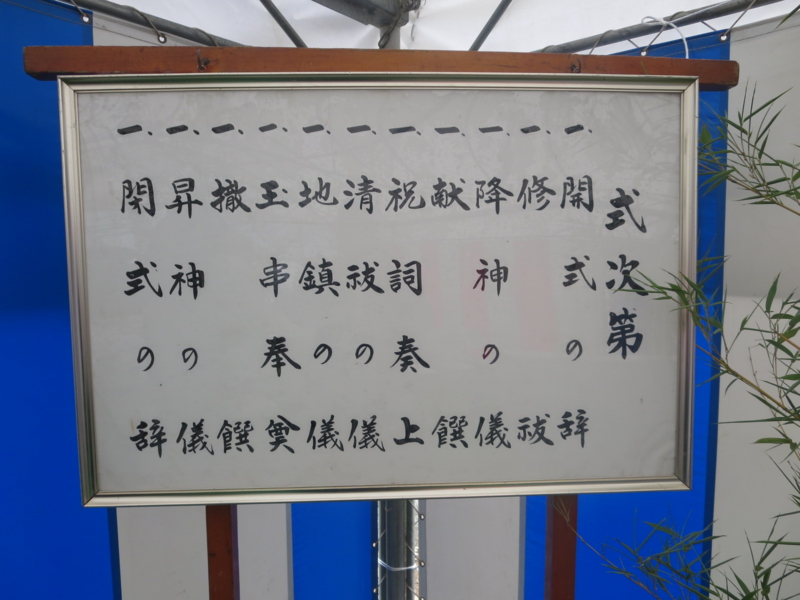 式次第
一、開式の辞
一、修祓
一、降神の儀
一、献饌
一、祝詞奏上
一、清祓の儀
一、地鎮の儀
一、玉串奉奠
一、撤饌
一、昇神の儀
一、閉式の辞